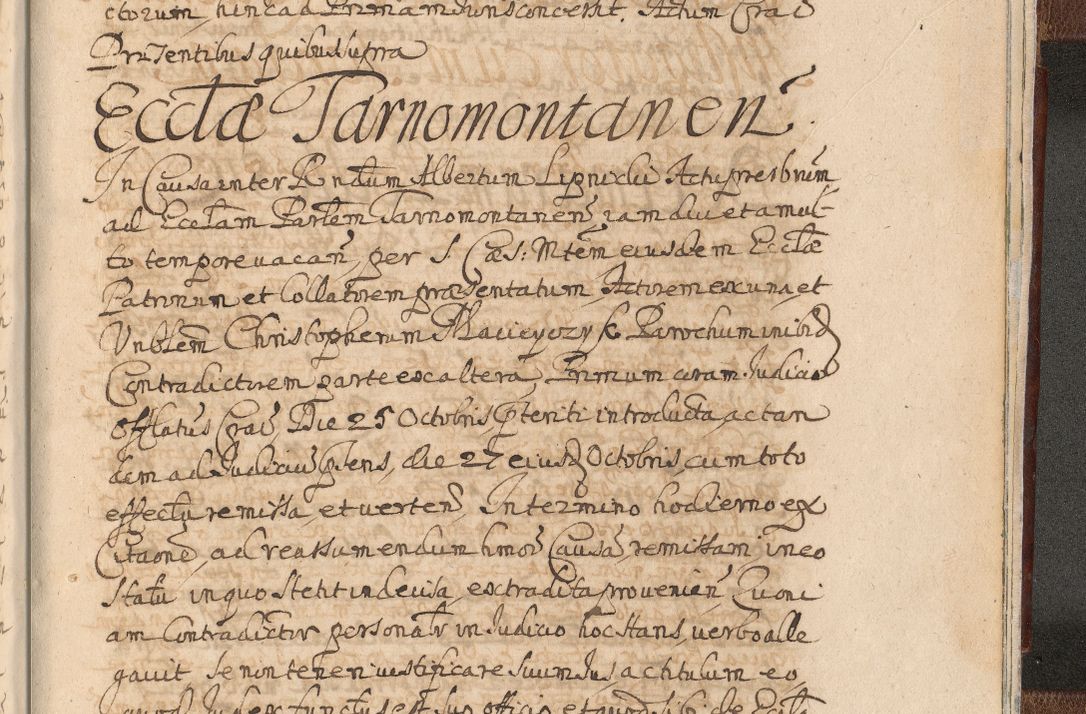 ctorum, hinc ad Primam Juris concessit. Actum Crac
Præsentibus quibus supra
Ecclæ Tarnomontanen
In Causa inter Rndum Albertum Lignixlii Actu presbrum
ad Ecclam Parlem Tarnomontanen iam diu et a mul-
to tempore vacan per S. Cæs: Mtem eiusdem Ecclæ
Patronum et Collatorem præsentatum Actorem ex una et
Vnblem Christopherum Parochum inibi
Contradictorem parte ex altera, Primum coram Judicio
Offlatus Crac, Die 25 Octobris pteriti introducta, ac tan
dem ad Judiciu psens, die 27 eiusd Octobris, cum toto
effectu remissa, et verten, In termino hodierno ex
Citaone, ad reassumendum hmoi Causa remissam, in eo
Statu in quo stetit indecisa, extradita provenien Quoni
am Contradictor personalr in Judicio hoc stans, verbo alle
gavit se non teneri iustificare suum Jus ac titulum eo
quod Judex functus est suo officio et quod sibi de Eccla